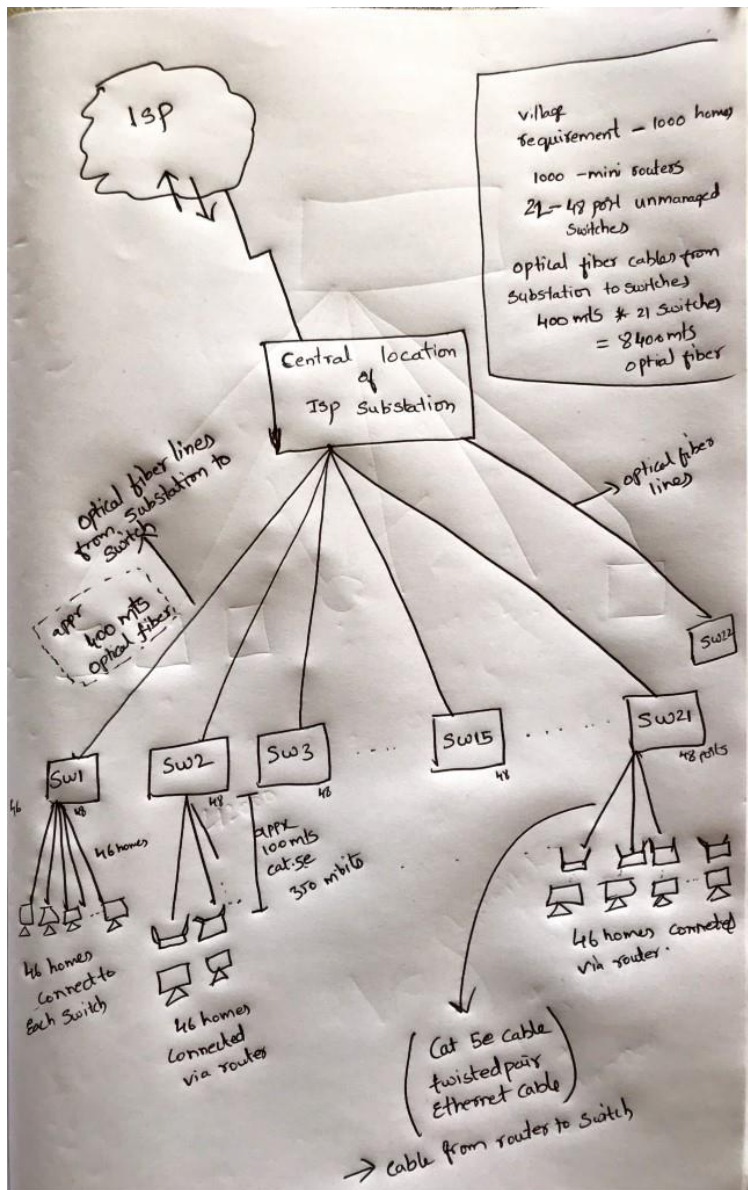 ISP
village
requirement - 1000 homes
1000 - mini routers
21 - 48 port unmanaged
switches
optical fiber cables from
substation to switches
400 mts * 21 switches
= 8400 mts
optial fiber
Central location
of
ISP substation
optical fiber lines
from substation to
switch
appr
400 mts
optical fiber
optical fiber
lines
SW22
SW1
SW2
SW3
....
SW15
.....
SW21
46
48
48
48
48
48 ports
46 homes
appx
100 mts
cat-5e
350 mbits
46 homes
connect to
Each switch
46 homes
connected
via router
46 homes conneted
via router.
(Cat 5e cable
twisted pair
Ethernet cable)
→ cable from router to switch